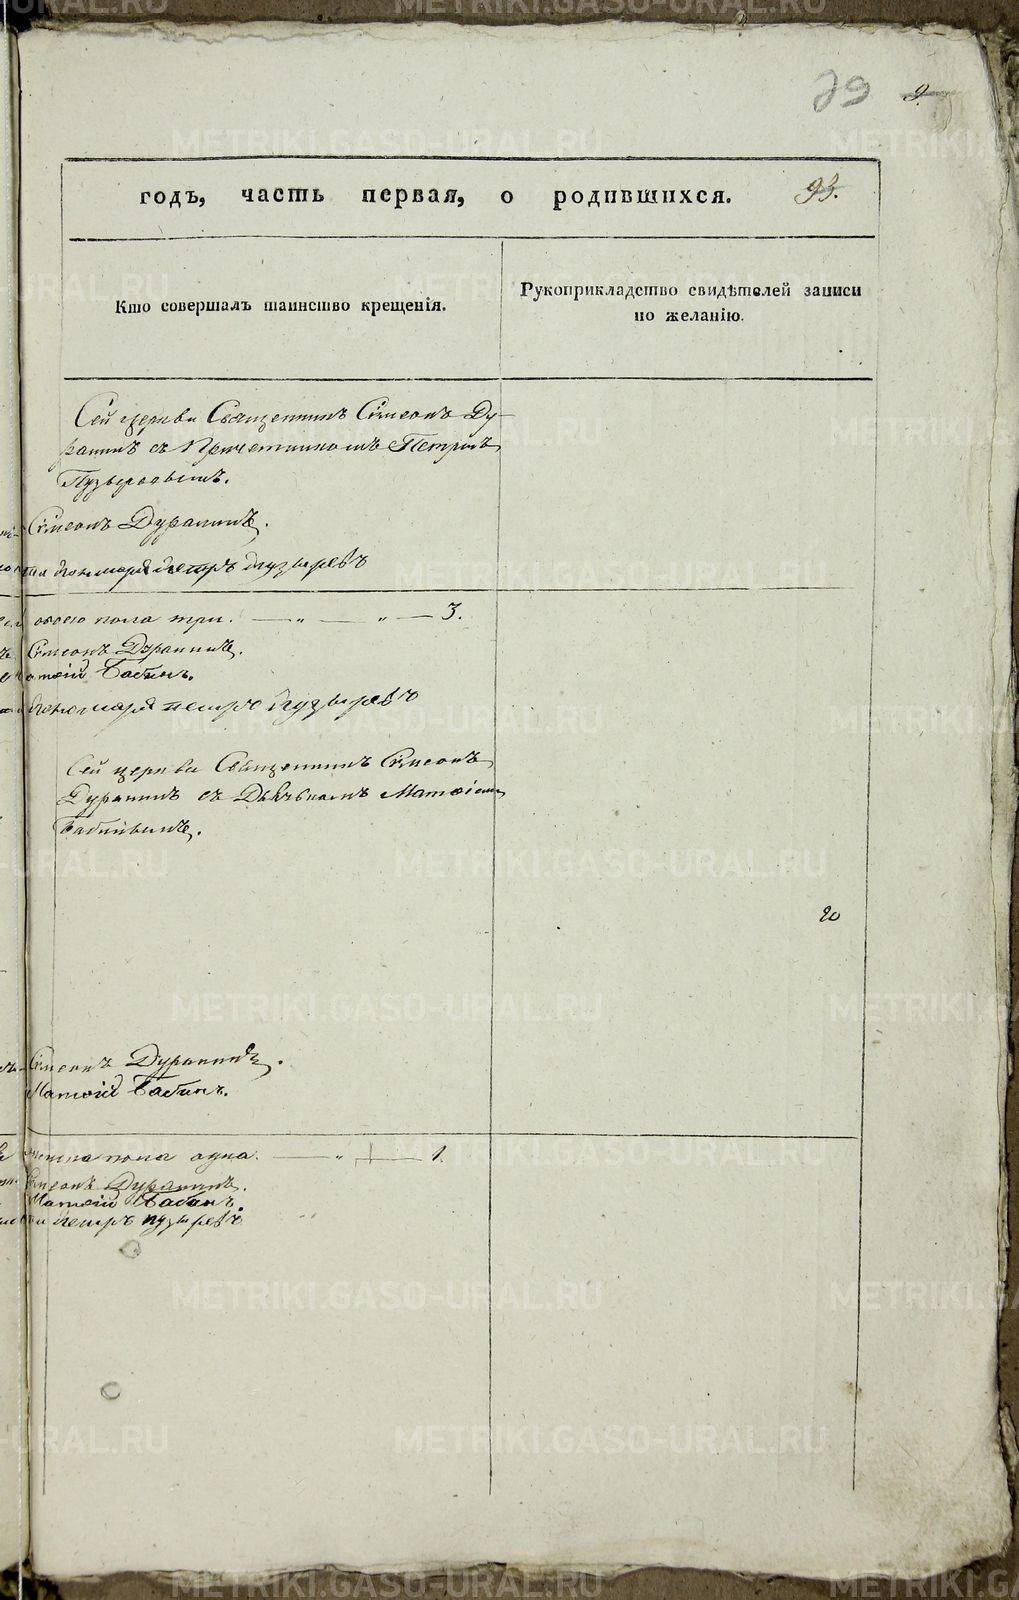 годъ, часть первая, о родившихся. 93.
Кто совершалъ таинство крещенія.
Рукоприкладство свидѣтелей записи
по желанію.
Сей церкви Священникъ Симеонъ Ду-
ранинъ съ Причетникомъ Петромъ
Пузыревымъ.
Симеонъ Дуранинъ.
пономарь петръ пузыревъ
обоего пола три. — „ — „ — 3.
Симеонъ Дуранинъ.
Матѳій Бабинъ.
пономарь петръ пузыревъ
Сей церкви Священникъ Симеонъ
Дуранинъ съ Дьячькомъ Матѳіемъ
Бабинымъ.
20
Симеонъ Дуранинъ.
Матѳій Бабинъ.
женска пола одна. — „ — 1.
Симеонъ Дуранинъ.
Матѳій Бабинъ.
петръ пузыревъ
METRIKI.GASO-URAL.RU